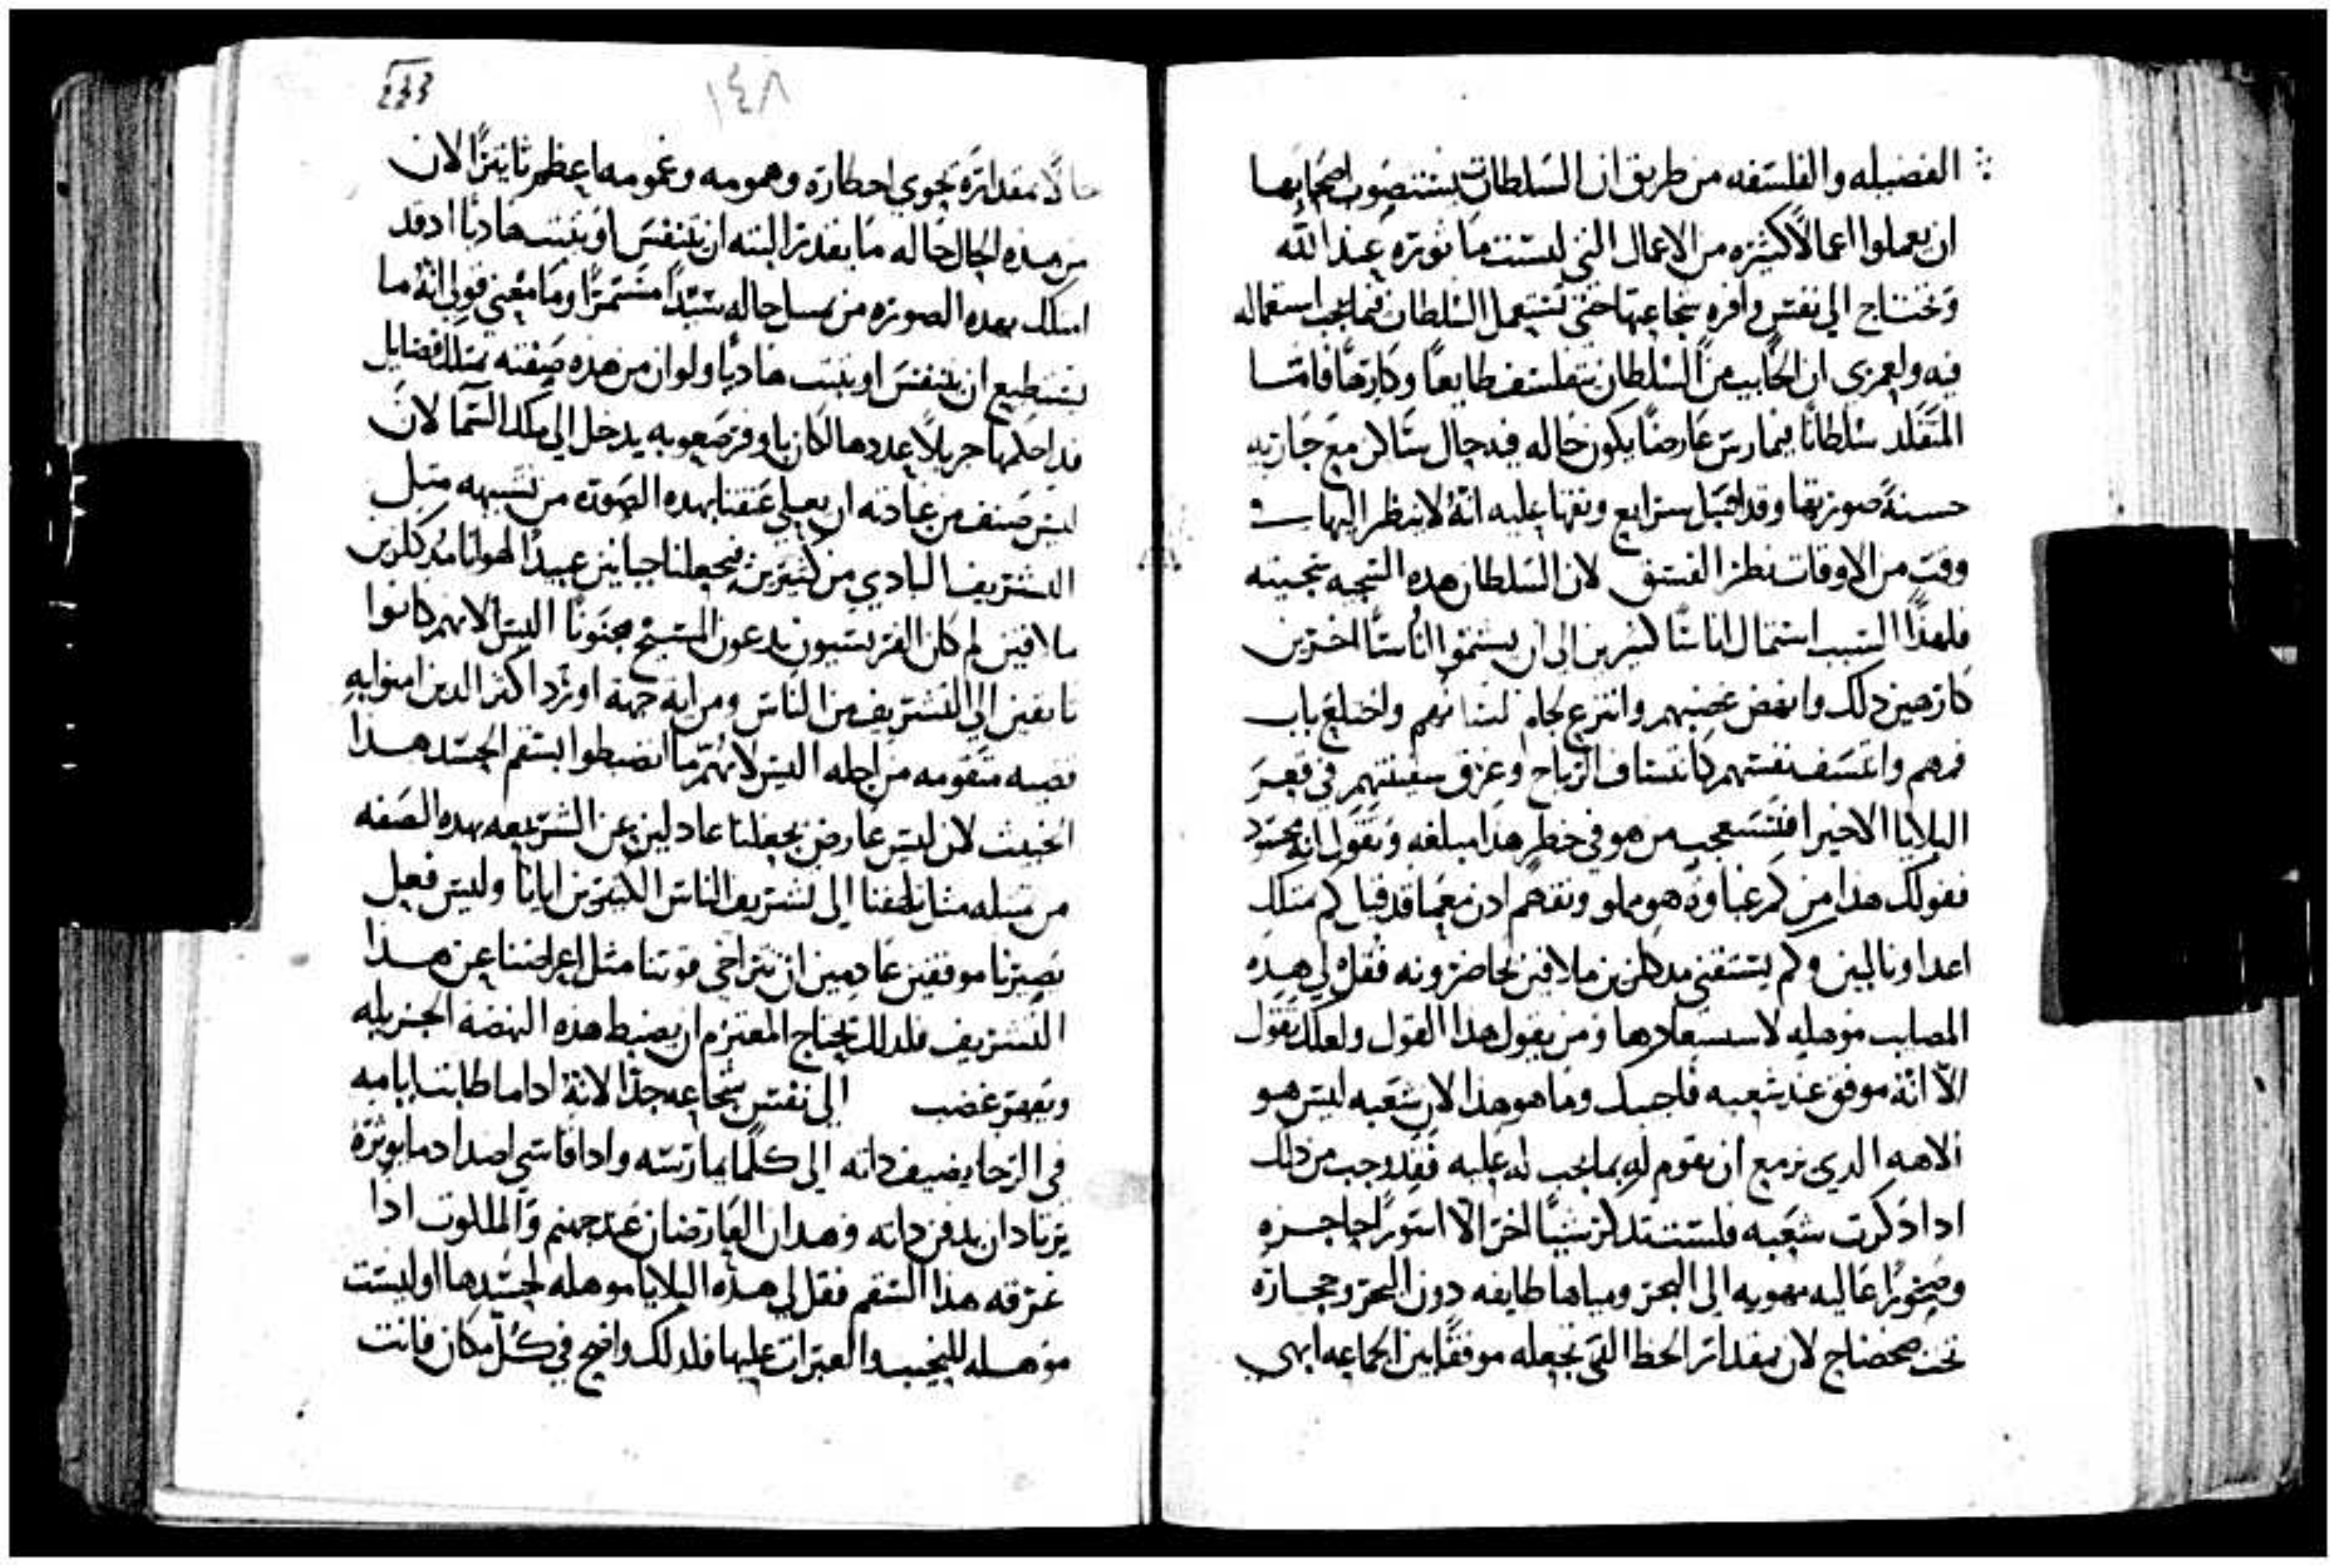 الفضيله والفلسفه من طريق ان السلطان يستنصون اصحابها
ان يعملوا اعمالاً كثيره من الاعمال التي ليست ما نوثره عند الله
وتحتاج الي نفس وافره شجاعتها حتي تستعمل السلطان فيما يجب استعماله
فيه ولعمري ان الخايب من السلطان يتفلسف طايعاً وكارهاً فاما
المتقلد سلطاناً فيمارس عارضاً يكون حاله فيه حال ساكن مع جاريه
حسنةً صورتها وقد اقتبل شرايع ونقها عليه انهُ لا ينظر اليها في
وقت من الاوقات نظر الفسق لان السلطان هده السجيه سجيته
فلهذا السبب استمال اناسًا كثيرين الي ان يشتموا اناسًا اخرين
كارهين دلك وانهض غضبهم وانتزع لجام لسانهم واختلع باب
فمهم واعسف نفسهم كاعتساف الرياح وغرق سفينتهم في قعر
البلايا الاخير افتستعجب من هو في خطر هذا مبلغه وتقول انه محسود
فقولك هذا من كم غباوة هو مملو وتفهم ادن معما قد قيل كم متلك
اعدا وثالبين وكم يستقني مدكلزين ملاقين يحاصرونه فقل لي هده
المصايب موهله لاستسعادها ومن يقول هدا القول ولعلك تقول
الا انهُ موفق عند شعبه فاجيبك وما هو هذا لان شعبه ليس هو
الاهه الدي يزمع ان يقوم له بما يجب له عليه فقد وجب من دلك
ادا دكرت شعبه فلست تدكر شيًا اخر الا استورًا حاجزه
وصخورًا عاليه مهويه الي البحر ومياها طايفه دون البحر وحجاره
تحت ضحضاح لان بمقدار الحظ التي تجعله موفقًا بين الجماعه ابهي
١٤٨
حالاً بمقداره يحوي اخطاره وهمومه وغمومه اعظم تاثيرًا لان
من هده الحال حاله ما يقدر البته ان يتنفس او يثبت هاديًا اد قد
امتلك بهده الصوره من يسل حاله سيدًا مستمرًا وما معني قولي انهُ ما
يستطيع ان يتنفس او يثبت هاديًا ولو ان من هذه صفته يمتلك فضايل
قد احكمها جزيلاً عددها لكان باوفر صعوبه يدخل الي ملك السما لان
ليس صنف من عادته ان يعلي عنقنا بهده الصوره من تشبهه مثل
التشريف البادي من كثيرين فيجعلنا جبانين عبيدًا لهوانا مدكلزين
ملاقين لم كان الفريسيون يدعون المسيح مجنونًا اليس لانهم كانوا
تايقين الي التشريف من الناس ومن اية جهة اورد اكثر الدين امنوا به
قضيه متقومه من اجله اليس لانهم ما انضبطوا بسقم الجسد هدا
الخبيث لان ليس عارض يجعلنا عادلين عن الشريعه بهده الصفه
من قبيله مثل تلهفنا الي تشريف الناس الكثيرين ايانا وليس فعل
يصيرنا موفقين عادمين ان تتراخي قوتنا مثل اعراضنا عن هدا
التشريف فلدلك يحتاج المعتزم ان يضبط هذه النهضه الجزيله
ويقهر غضب الي نفس شجاعه جدًا لانه ادا ما طابت ايامه
في الرخا يضيف داته الي كلما يمارسه وادا قاسي اضداد ما يوثره
يرتاد ان يدفن داته وهدان العارضان عند جهنم والملكوت ادا
غرقه هذا السقم فقل لي هده البلايا موهله لحسدها اوليست
موهله للنحيب والعبرات عليها فلدلك واضح في كل مكان فانت